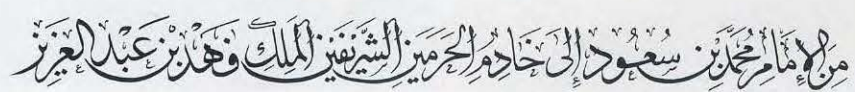 مِنَ الإِمَامِ مُحَمَّد بْن سُعُود إِلَى خَادِمِ الحَرَمَيْنِ الشَّرِيفَيْنِ الْمَلِكِ فَهْد بْن عَبْد العَزِيز